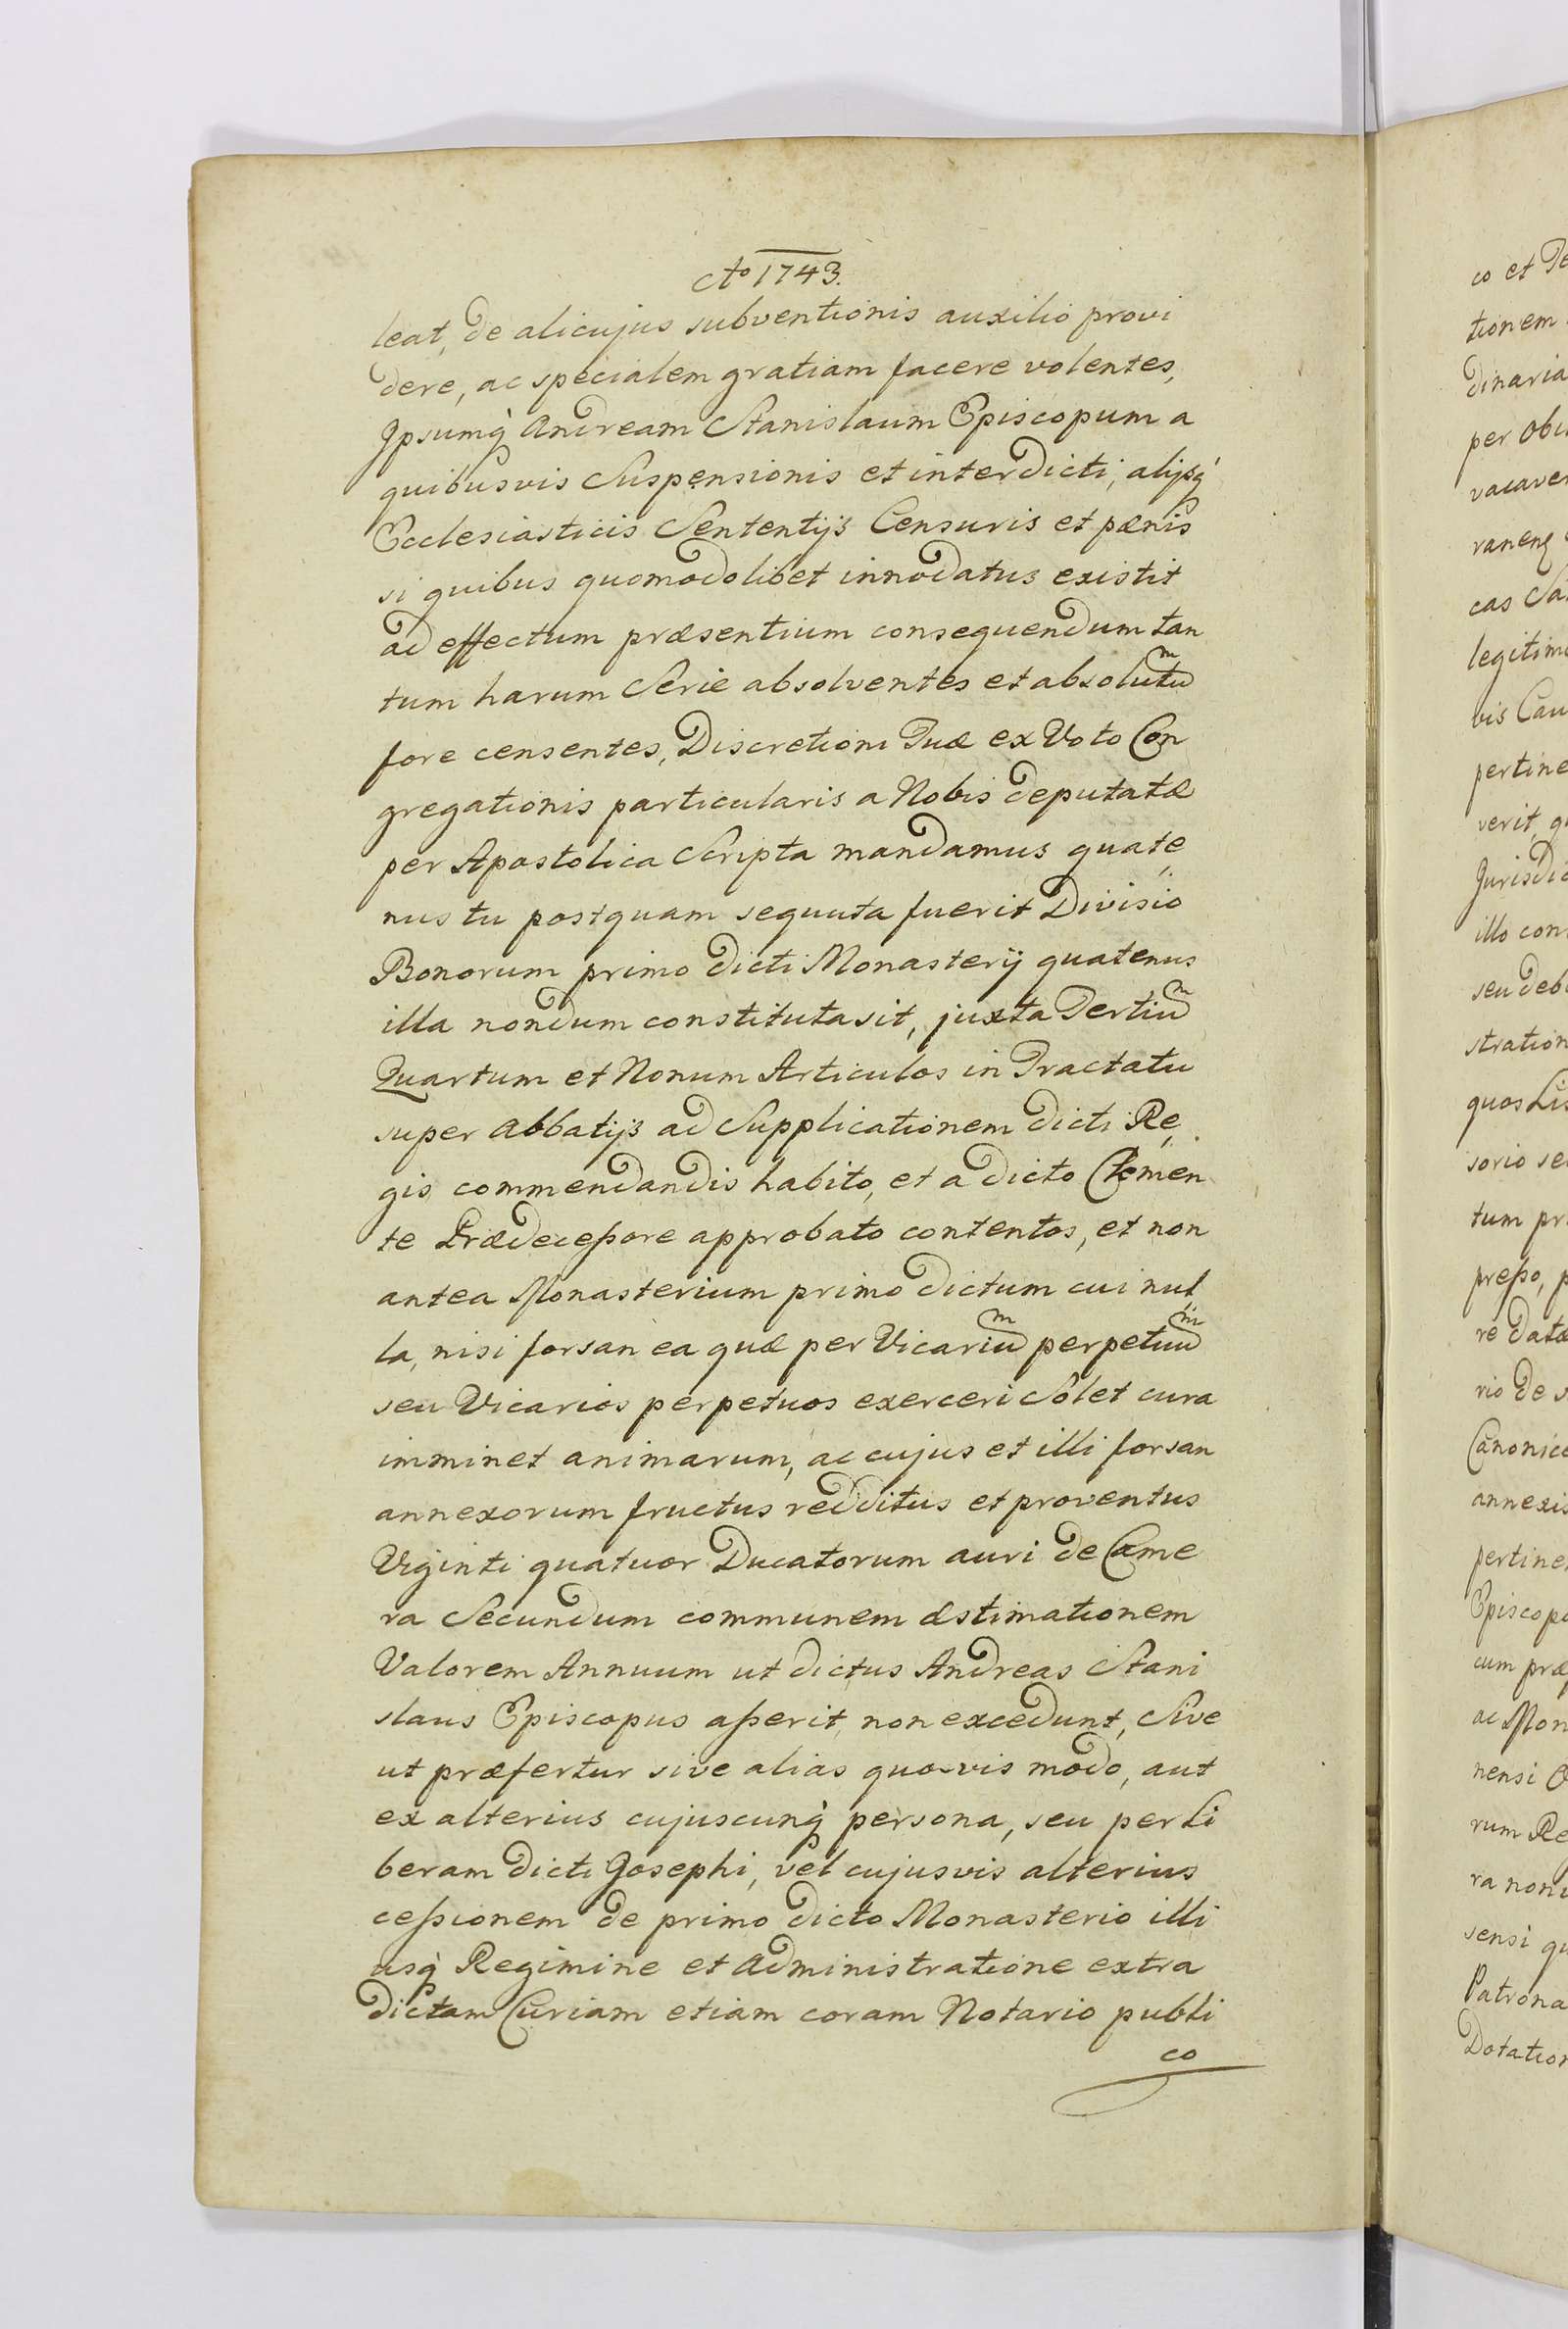 Ao 1743.
leat, de alicujus subventionis auxilio provi
dere, ac specialem gratiam facere volentes,
Ipsumq̀ Andream Stanislaum Episcopum a
quibusvis Suspensionis et interdicti, alijsq̀
Ecclesiasticis Sententijs Censuris et pænis
si quibus quomodolibet innodatus existit
ad effectum præsentium consequendum tan
tum harum Serie absolventes et absolutũ
fore censentes, Discretioni Tuæ ex Voto Con
gregationis particularis a Nobis deputatæ
per Apostolica Scripta mandamus quate
nus tu postquam sequuta fuerit Divisio
Bonorum primo dicti Monasterij quatenus
illa nondum constituta sit, juxta Tertiũ
Quartum et Nonum Articulos in Tractatu
super Abbatijs ad Supplicationem dicti Re
gis commendandis habito, et a dicto Clemen
te Prædeceßore approbato contentos, et non
antea Monasterium primo dictum cui nul
la, nisi forsan ea quæ per Vicariũ perpetuũ
seu Vicarios perpetuos exerceri Solet cura
imminet animarum, ac cujus et illi forsan
annexorum fructus redditus et proventus
Viginti quatuor Ducatorum auri de Came
ra Secundum communem æstimationem
Valorem Annuum ut dictus Andreas Stani
slaus Episcopus aßerit, non excedunt, Sive
ut præfertur sive alias quo-vis modo, aut
ex alterius cujuscunq̀ persona, seu per Li
beram dicti Josephi, vel cujusvis alterius
ceßionem de primo dicto Monasterio illi
usq̀ Regimine et Administratione extra
dictam Curiam etiam coram Notario publi
co
co et
tionem
dinaria
per
cas
legitim
bis Cau
pertine
verit
illo con
seu deb
stration
quos
sorio se
tum pr
preßo,
re datæ
rio de
Canonic
annexis
pertine
Episcop
cum præ
ac Mon
nensi
rum Re
ra non
sensi qu
Patrona
Dotation